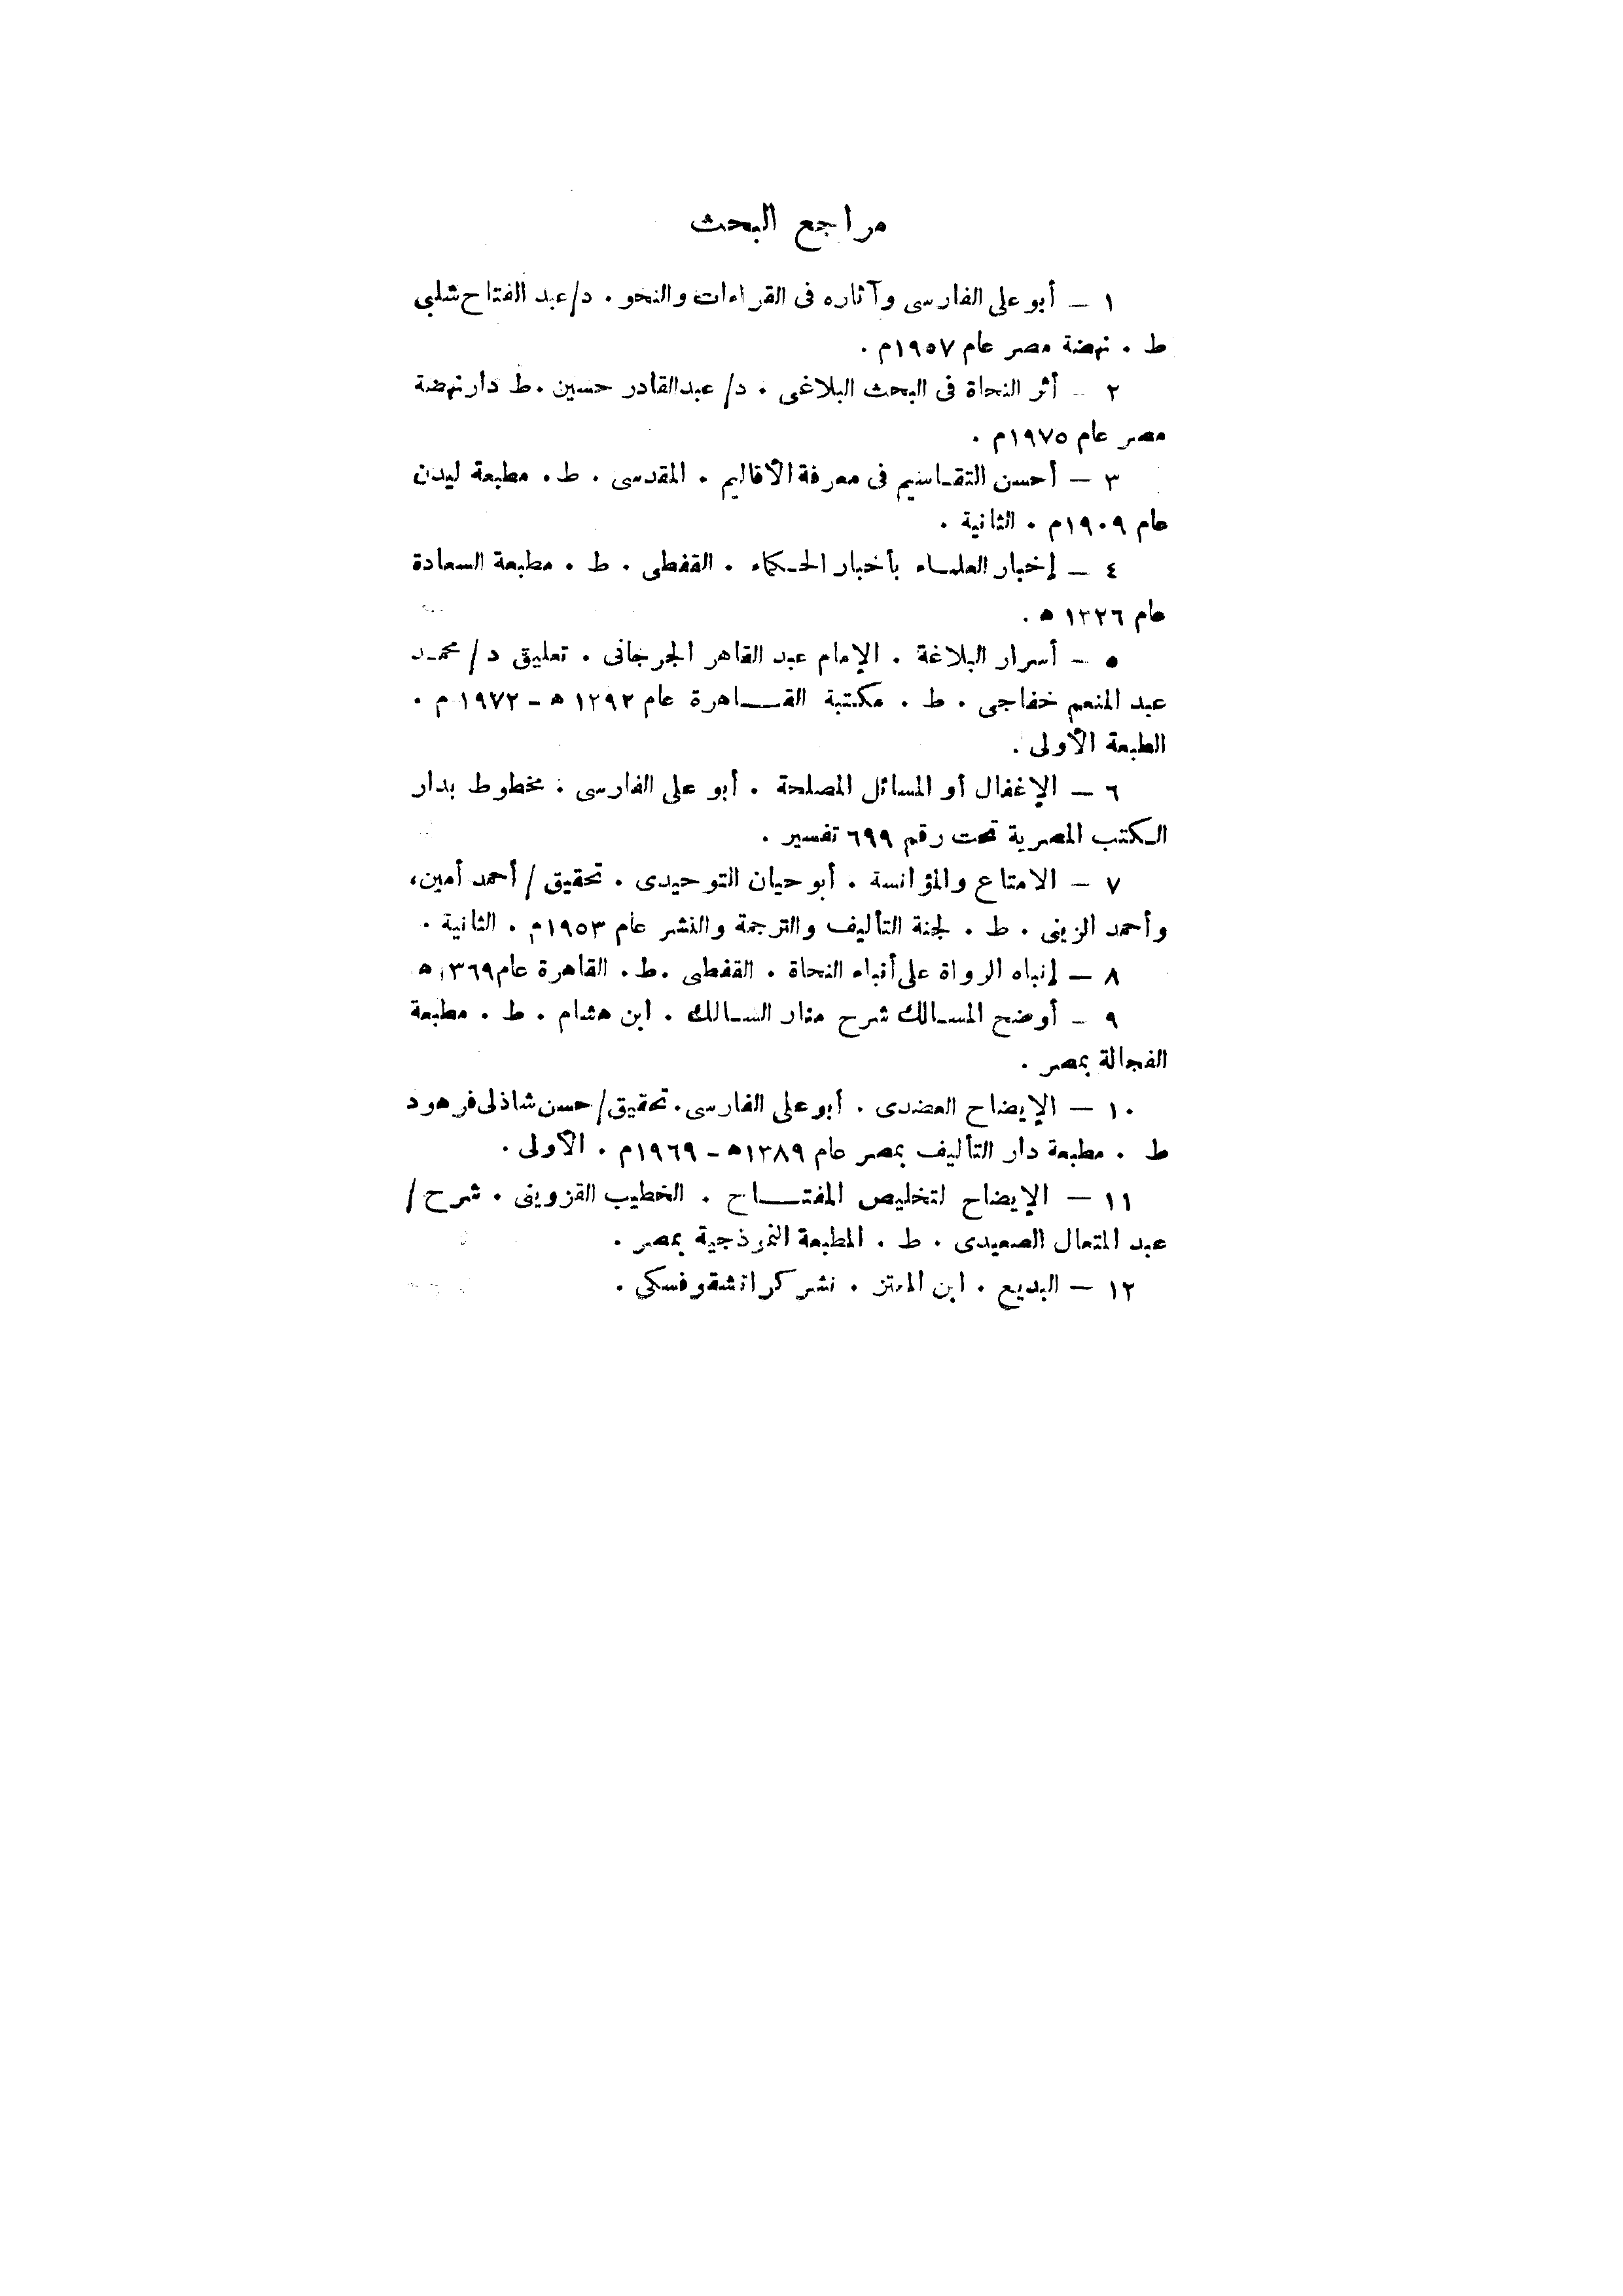 مراجع البحث
١ – أبو على الفارسى وآثاره فى القراءات والنحو . د/عبد الفتاح شلبي
ط . نهضة مصر عام ١٩٥٧م .
٢ – أثر النحاة فى البحث البلاغى . د/ عبدالقادر حسين . ط دار نهضة
مصر عام ١٩٧٥م .
٣ – أحسن التقـاسيم فى معرفة الأقاليم . المقدسى . ط . مطبعة ليدن
عام ١٩٠٩م . الثانية .
٤ – إخبار العلمـاء بأخبار الحـكماء . القفطى . ط . مطبعة السعادة
عام ١٣٢٦ ه .
٥ – أسرار البلاغة . الإمام عبد القاهر الجرجانى . تعليق د / محمـد
عبد المنعم خفاجى . ط . مكتبة القـــاهرة عام ١٢٩٢ ه – ١٩٧٢ م .
الطبعة الأولى .
٦ – الإغفال أو المسائل المصلحة . أبو على الفارسى . مخطوط بدار
الـكتب المصرية تحت رقم ٦٩٩ تفسير .
٧ – الامتاع والمؤانسة . أبو حيان التوحيدى . تحقيق / أحمد أمين،
وأحمد الزينى . ط . لجنة التأليف والترجمة والنشر عام ١٩٥٣م . الثانية .
٨ – إنباه الرواة على أنباء النحاة . القفطى . ط . القاهرة عام ١٣٦٩ ه
٩ – أوضح المسـالك شرح منار السـالك . ابن هشام . ط . مطبعة
الفجالة بمصر .
١٠ – الإيضاح العضدى . أبو على الفارسى . تحقيق/ حسن شاذلى فرهود
ط . مطبعة دار التأليف بمصر عام ١٣٨٩ه – ١٩٦٩م . الأولى .
١١ – الإيضاح لتخليص المفتـــاح . الخطيب القزوينى . شرح /
عبد المتعال الصعيدى . ط . المطبعة النموذجية بمصر .
١٢ – البديع . ابن المعتز . نشر كراتشقوفسكى .